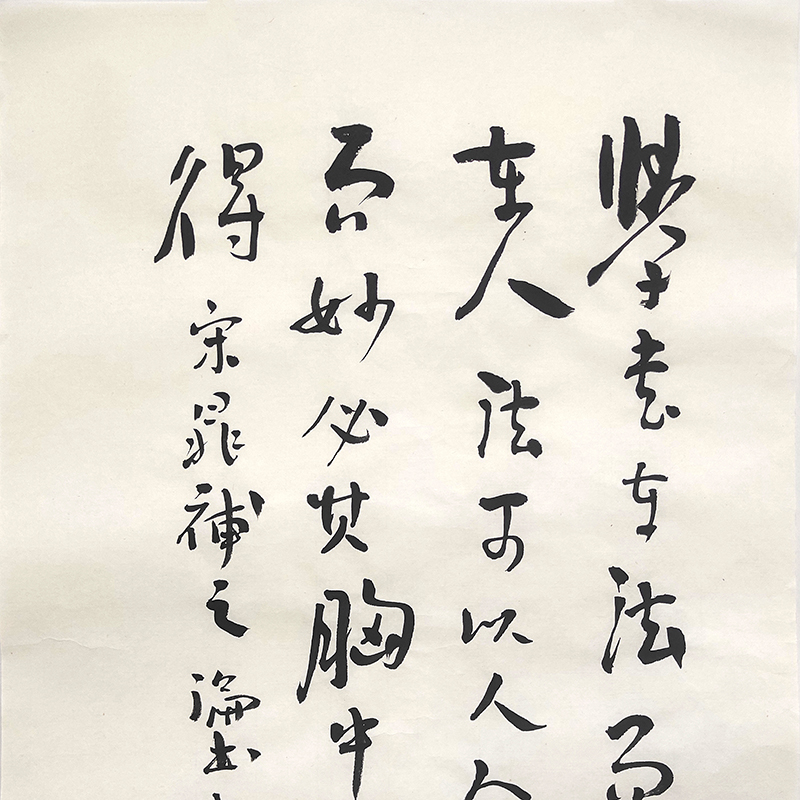 學書在法而
在人法可以人人
而妙必其胸中
得 宋晁補之論書